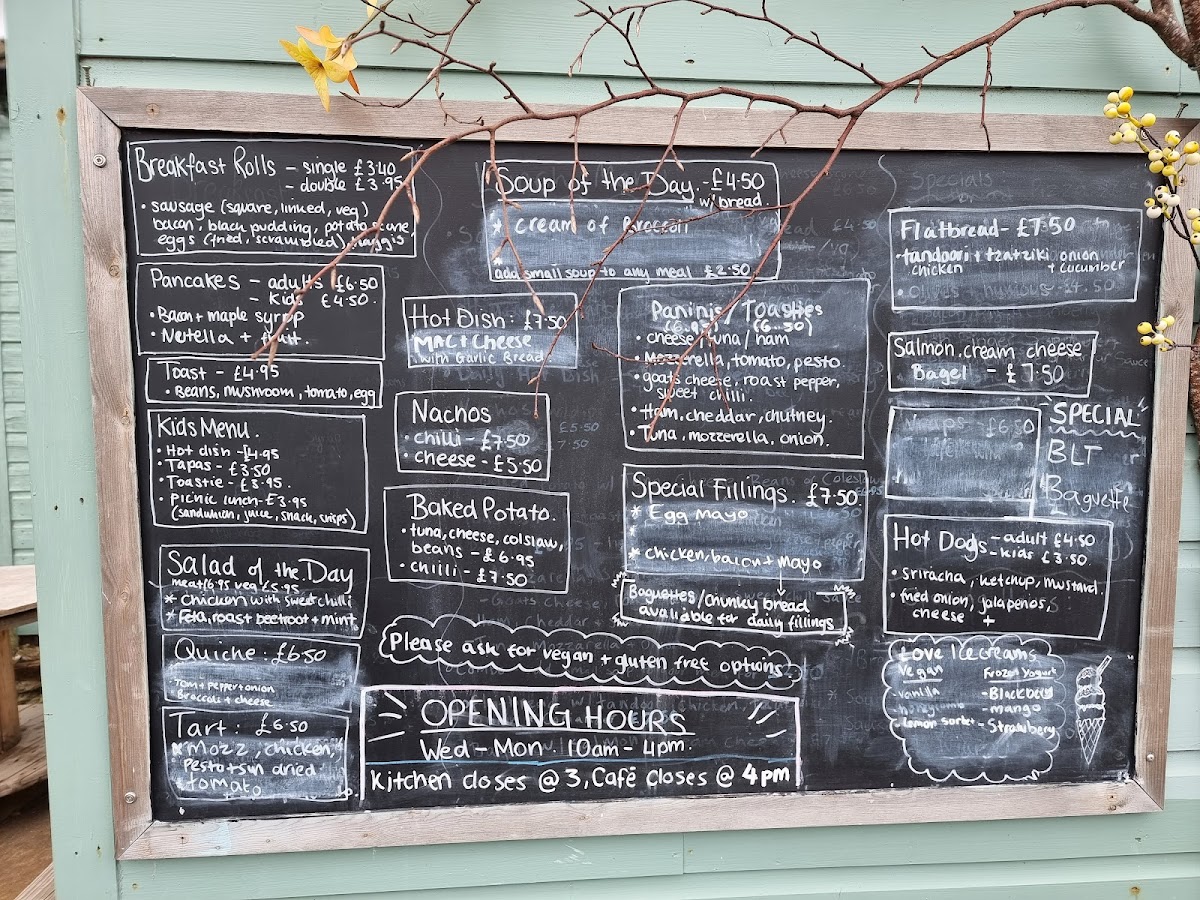 Breakfast Rolls - single £3.40
- double £3.95
• sausage (square, linked, veg)
bacon, black pudding, potato scone,
eggs (fried, scrambled) haggis
Pancakes - adults £6.50
- Kids £4.50
• Bacon + maple syrup
• Nutella + fruit.
Toast - £4.95
• Beans, mushroom, tomato, egg
Kids Menu.
• Hot dish - £4.95
• Tapas - £3.50
• Toastie - £3.95
• Picnic lunch - £3.95
(sandwich, juice, snack, crisps)
Salad of the Day
meat £6.95 veg £5.95
* Chicken with sweet chilli
* Feta, roast beetroot + mint
Quiche. £6.50
Tom + pepper + onion
Broccoli + cheese
Tart: £6.50
* Mozz, chicken,
Pesto + sun dried
tomato
Soup of the Day. - £4.50
w/ bread.
* Cream of Broccoli
add small soup to any meal £2.50
Hot Dish: £7.50
MAC + Cheese
with Garlic Bread
Nachos
• chilli - £7.50
• cheese - £5.50
Baked Potato.
• tuna, cheese, colslaw,
beans - £6.95
• chilli - £7.50
Paninis / Toasties
(£6.50)
• cheese, tuna / ham
• Mozzerella, tomato, pesto.
• goats cheese, roast pepper,
sweet chilli.
• Ham, cheddar, chutney.
• Tuna, mozzerella, onion.
Special Fillings. £7.50
* Egg mayo
*
* chicken, bacon + mayo
Baguettes / Chunky bread
available for daily fillings
Please ask for vegan + gluten free options.
OPENING HOURS
Wed - Mon. 10am - 4pm.
Kitchen closes @ 3, Café closes @ 4pm
Specials
Flatbread - £7.50
• tandoori + tzatziki, onion
chicken + cucumber
Salmon, cream cheese
Bagel - £7.50
Wraps £6.50
SPECIAL
BLT
Baguette
Hot Dogs - adult £4.50
- kids £3.50.
• sriracha, ketchup, mustard.
• fried onion, jalapenos,
cheese +
Love Icecreams
Vegan Frozen Yogurt
- vanilla - Blackberry
- honeycomb - mango
- Lemon sorbet - Strawbery